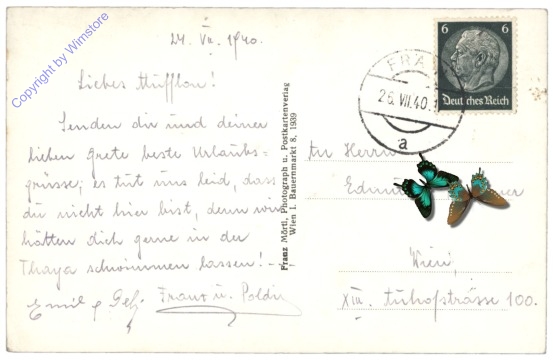 24. VII. 1940.
Liebes Mufflon!
Senden dir und deiner
lieben Grete beste Urlaubs=
grüsse; es tut uns leid, dass
du nicht hier bist, denn wir
hätten dich gerne in der
Thaya schwimmen lassen! -
Emil Franz u. Poldi
Franz Mörtl, Photograph u. Postkartenverlag
Wien I. Bauernmarkt 8, 1939
6 6
Deutsches Reich
FRA
25. VII. 40. 1
a
An Herrn
Wien,
XIII. Auhofstrasse 100.
Copyright by Wimstore